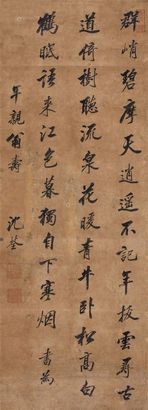 群峭碧摩天逍遥不記年撥雲尋古
道倚樹聽流泉花暖青牛卧松高白
鶴眠語來江色暮獨自下寒烟 書為
年親翁壽
沈荃